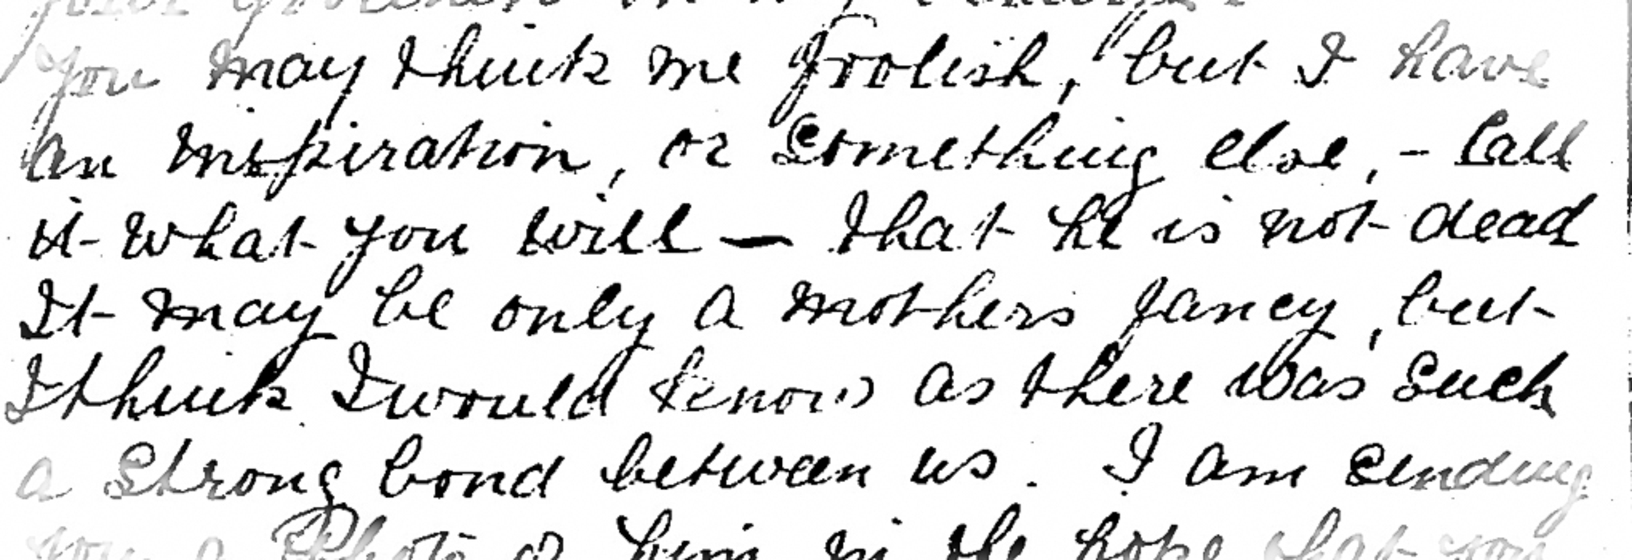 You may think me foolish, but I have
an inspiration, or something else, - Call
it what you will — that he is not dead
It may be only a mothers fancy, but
I think I would know as there was such
a strong bond between us. I am sending
you a Photo of him in the hope that you